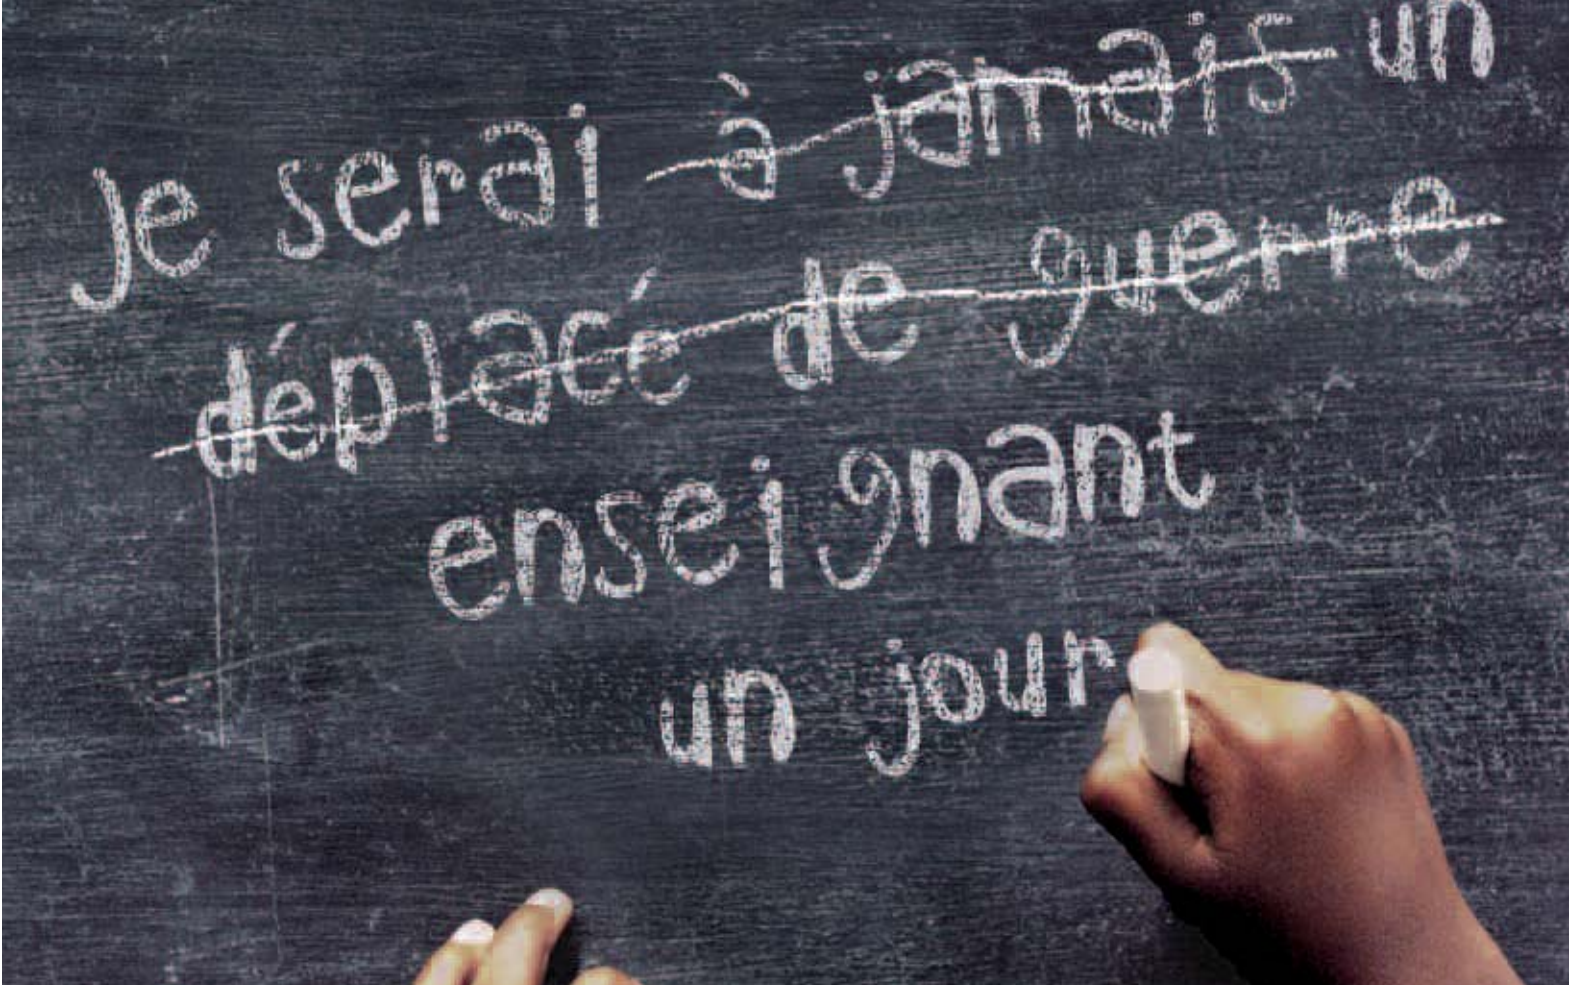 Je serai à jamais un
déplacé de guerre
enseignant
un jour